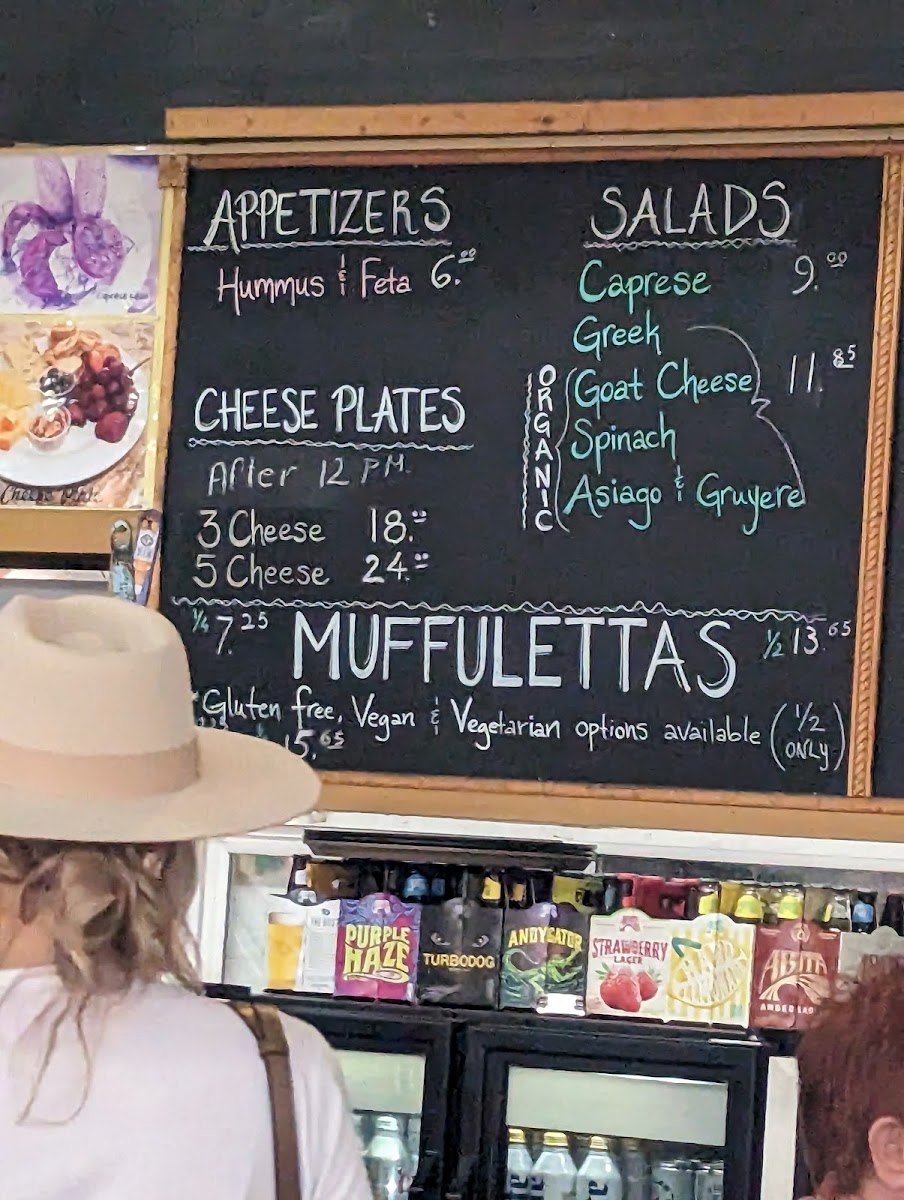 APPETIZERS
Hummus & Feta 6.00
CHEESE PLATES
After 12 PM.
3 Cheese 18.00
5 Cheese 24.00
SALADS
Caprese 9.00
Greek
Goat Cheese 11.85
Spinach
Asiago & Gruyere
ORGANIC
1/4 7.25 MUFFULETTAS 1/2 13.65
Gluten free, Vegan & Vegetarian options available (1/2 ONLY)
15.65
Cheese Plate
PURPLE HAZE
TURBODOG
ANDYGATOR
STRAWBERRY
LAGER
ABITA
AMBER